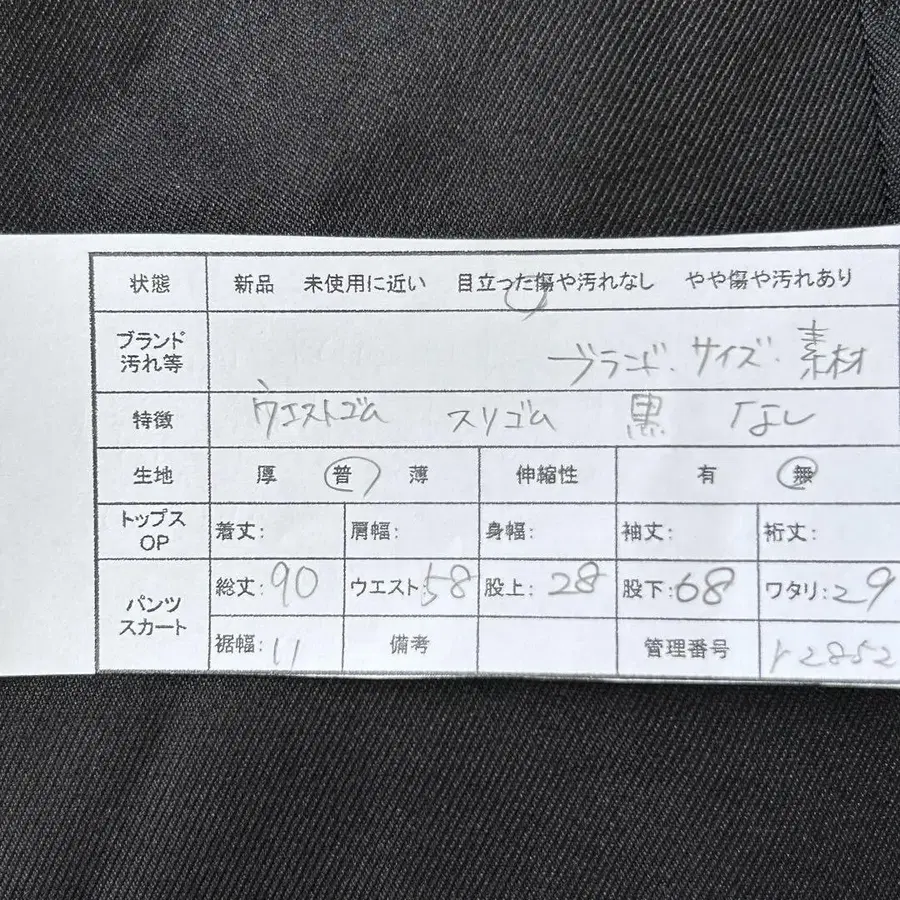 状態 新品 未使用に近い 目立った傷や汚れなし やや傷や汚れあり
ブランド
汚れ等 ブランド・サイズ・素材
特徴 ウエストゴム スソゴム 黒 なし
生地 厚 普 薄 伸縮性 有 無
トップス
OP 着丈: 肩幅: 身幅: 袖丈: 裄丈:
パンツ
スカート 総丈:90 ウエスト:58 股上:28 股下:68 ワタリ:29
裾幅:11 備考 管理番号 r2852